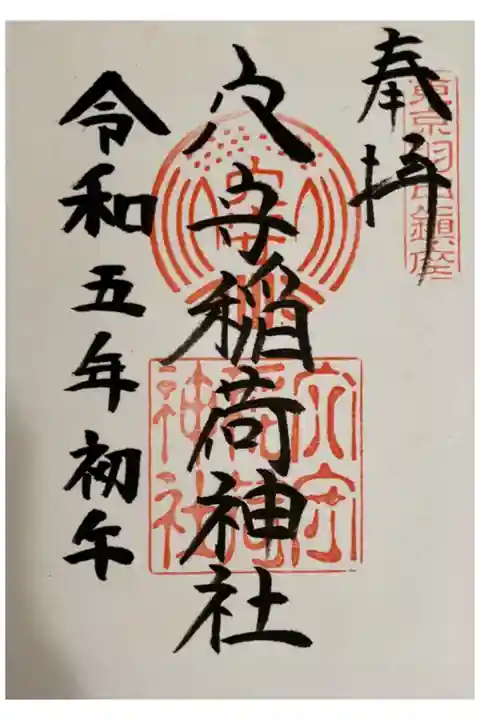 奉拝
東京羽田鎮座
穴守稲荷神社
穴守
稲荷
神社
令和五年初午